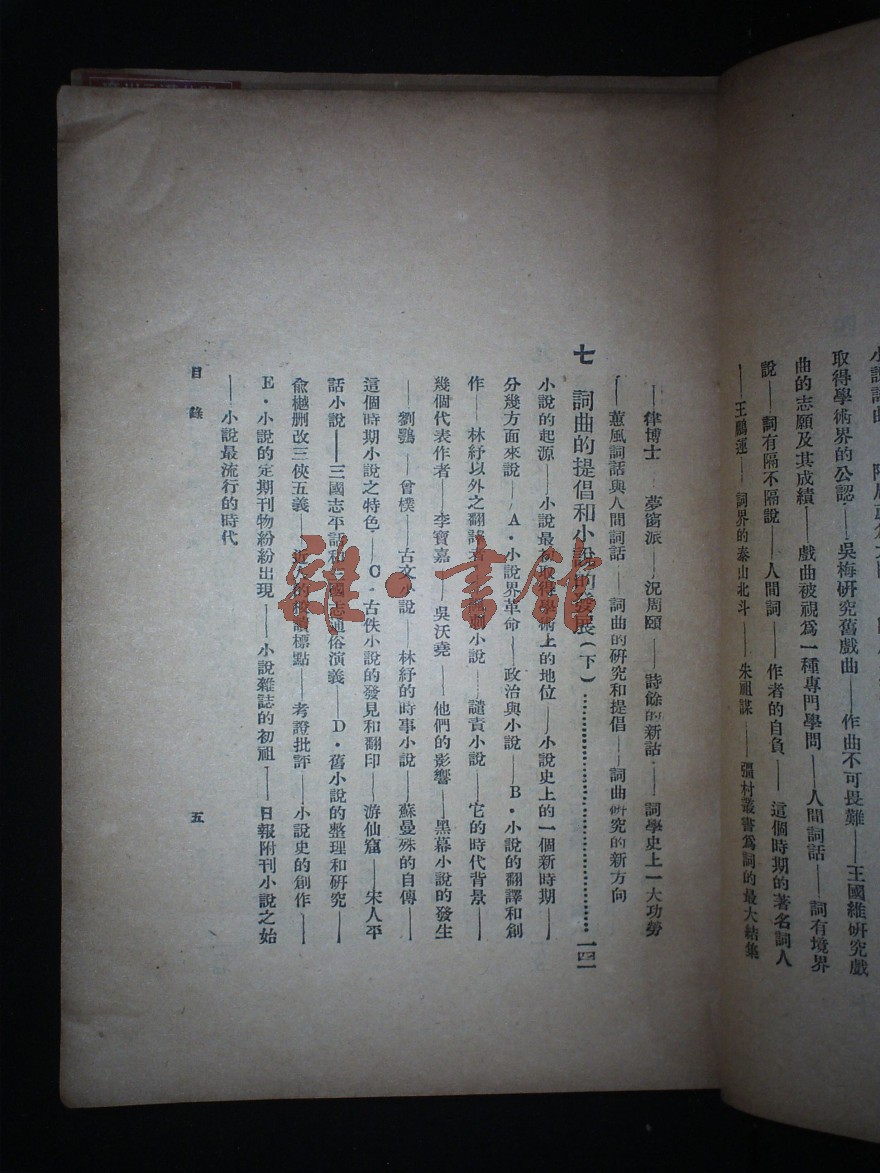 取得學術界的公認——吳梅硏究舊戲曲——作曲不可畏難——王國維硏究戲
曲的志願及其成績——戲曲被視爲一種專門學問——人間詞話——詞有境界
說——詞有隔不隔說——人間詞——作者的自負——這個時期的著名詞人
——王鵬運——詞界的泰山北斗——朱祖謀——彊村叢書爲詞的最大結集
——律博士——夢窗派——況周頤——詩餘的新詁——詞學史上一大功勞
——蕙風詞話與人間詞話——詞曲的硏究和提倡——詞曲硏究的新方向
七 詞曲的提倡和小說的發展(下)……一四一
小說的起源——小說最初取得學術上的地位——小說史上的一個新時期——
分幾方面來說——A・小說界革命——政治與小說——B・小說的翻譯和創
作——林紓以外之翻譯者——諷刺小說——譴責小說——它的時代背景——
幾個代表作者——李寶嘉——吳沃堯——他們的影響——黑幕小說的發生
——劉鶚——曾樸——古文小說——林紓的時事小說——蘇曼殊的自傳——
這個時期小說之特色——C・古佚小說的發見和翻印——游仙窟——宋人平
話小說——三國志平話和三國志通俗演義——D・舊小說的整理和硏究——
兪樾刪改三俠五義——近人的校讀標點——考證批評——小說史的創作——
E・小說的定期刊物紛紛出現——小說雜誌的初祖——日報附刊小說之始
——小說最流行的時代
目錄
五
雜・書館